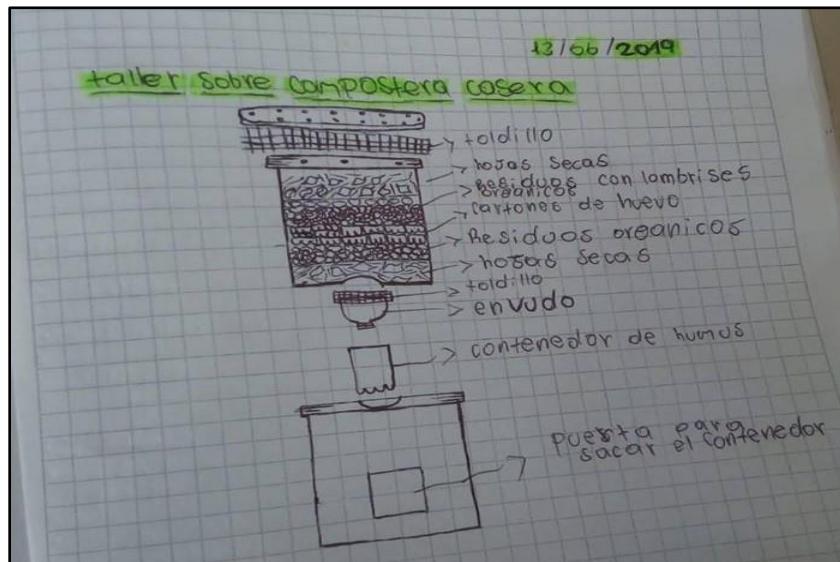 13/06/2019
taller sobre compostera casera
toldillo
hojas secas
Residuos con lombrises
organicos
cartones de huevo
Residuos organicos
hojas secas
toldillo
envudo
contenedor de humus
puerta para
sacar el contenedor